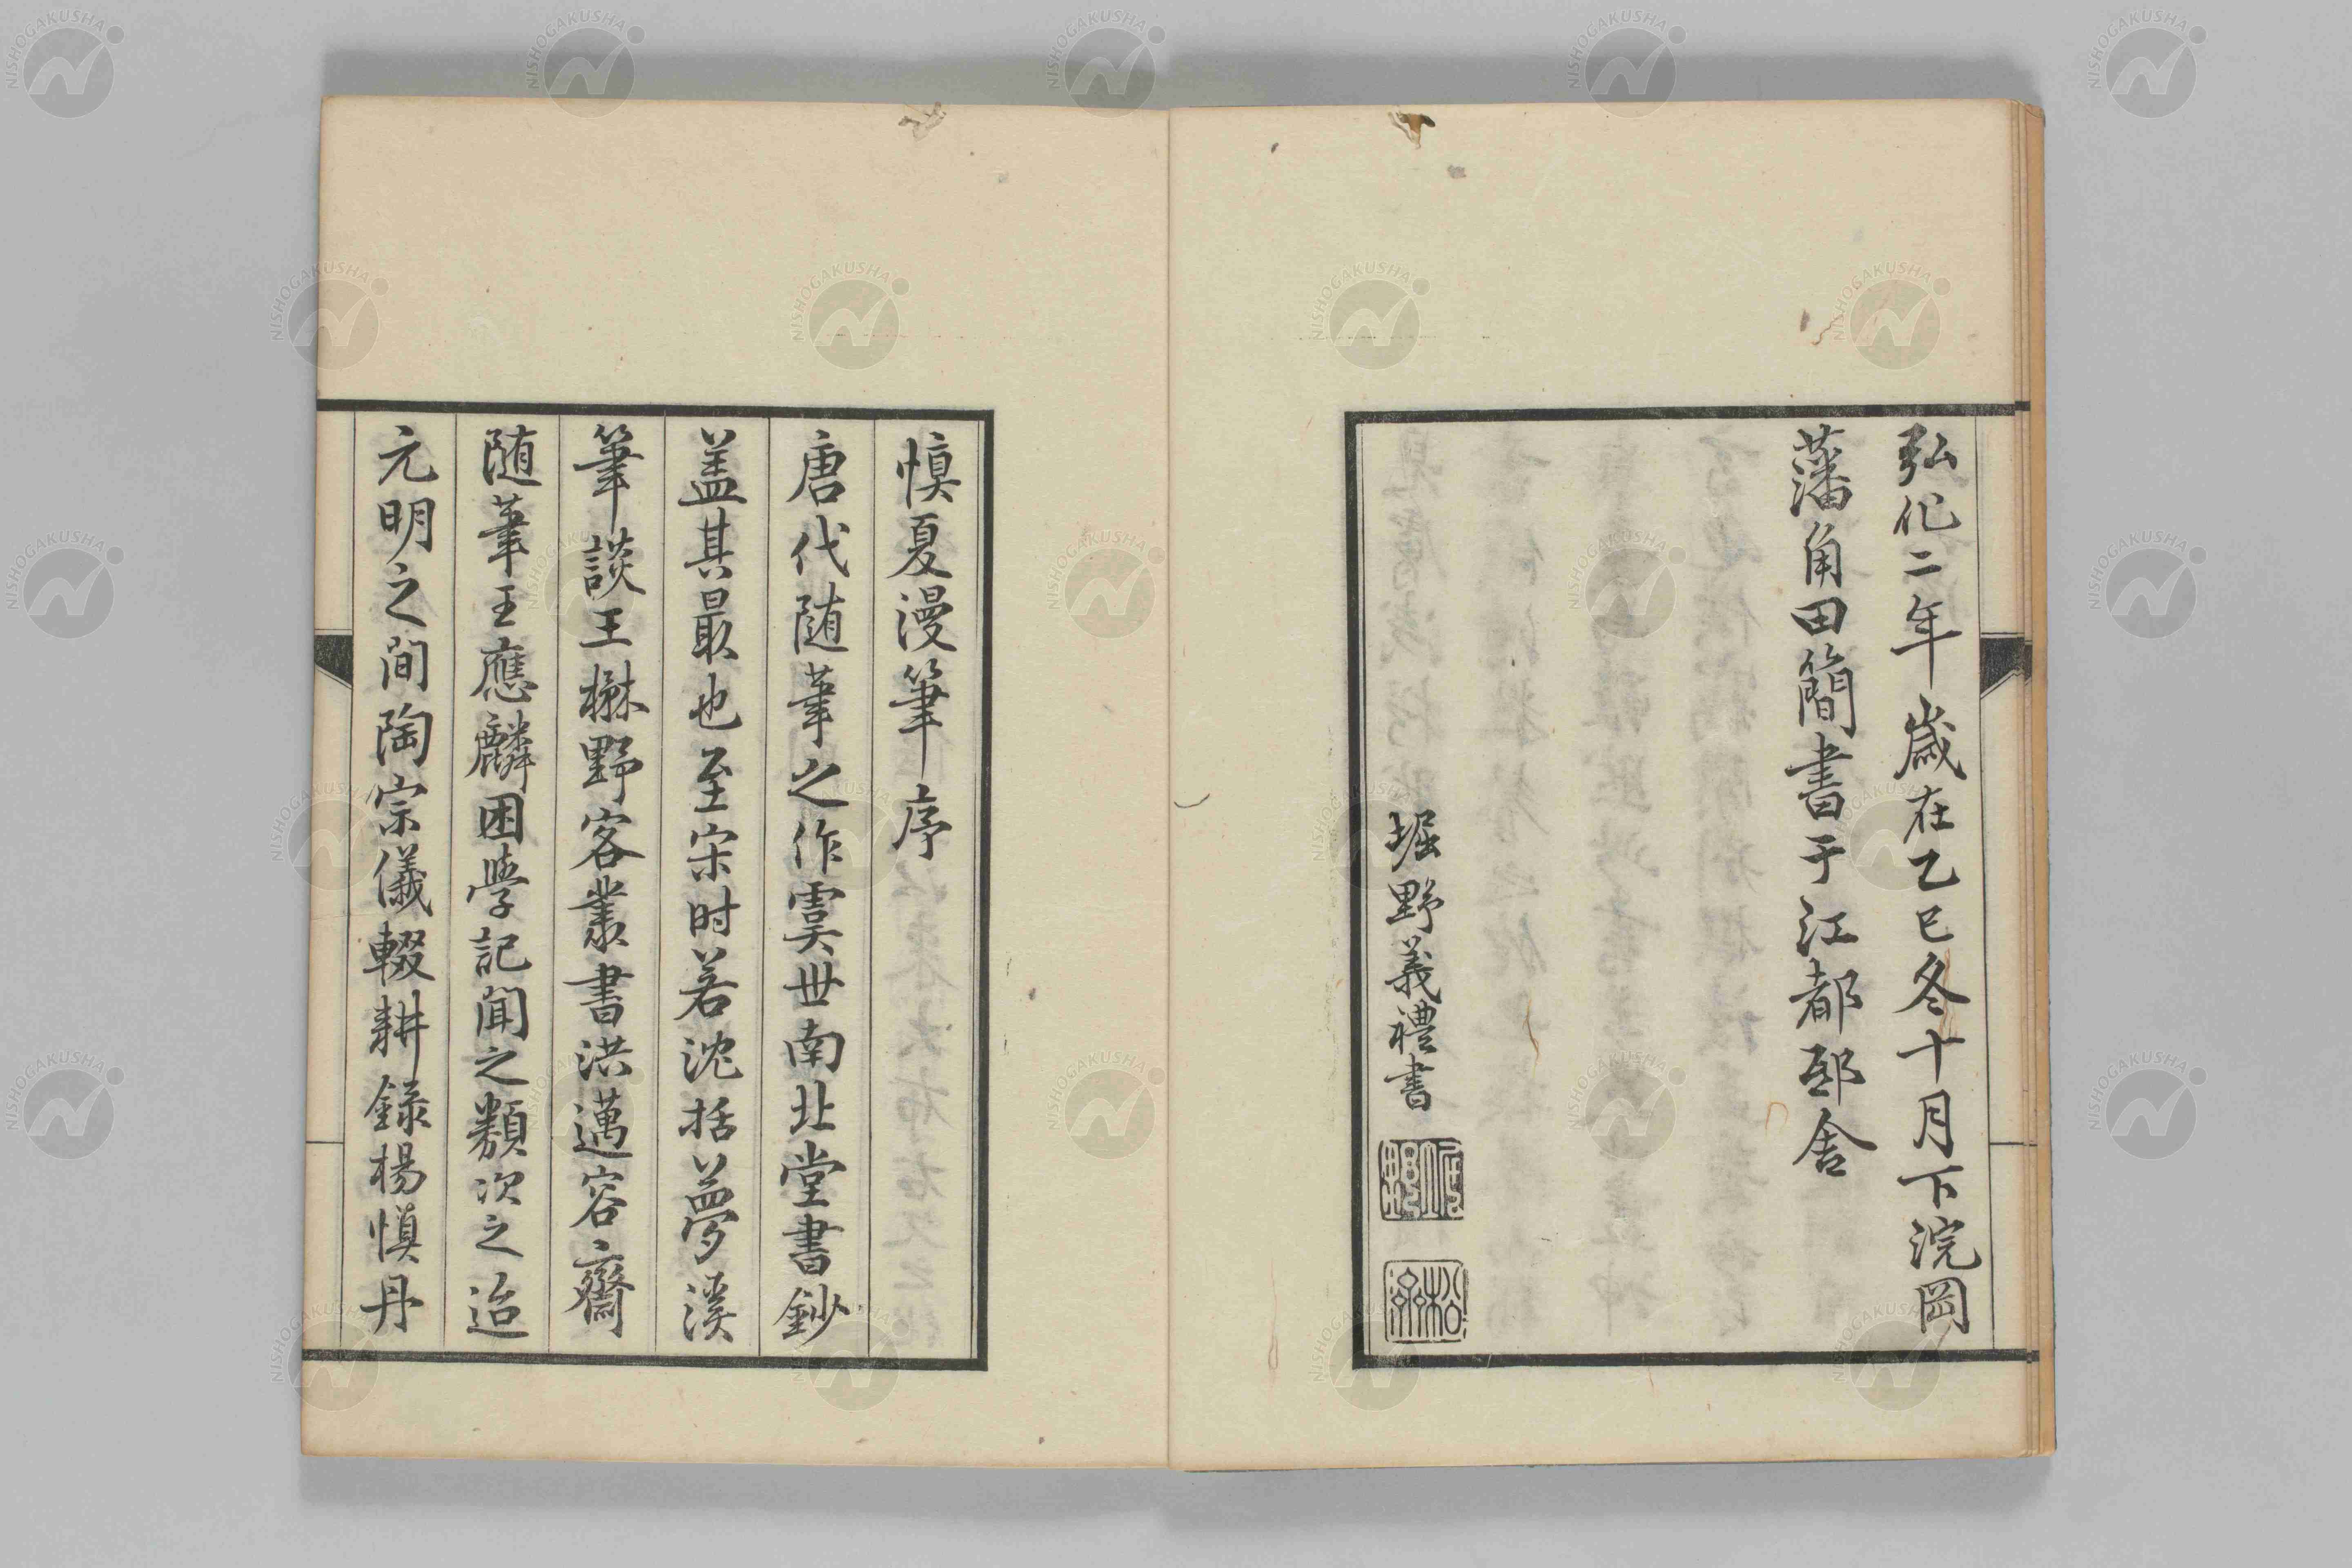 弘化二年歳在乙巳冬十月下浣岡
藩角田簡書于江都邸舎
堀野義禮書
慎夏漫筆序
唐代随筆之作虞世南北堂書鈔
盖其最也至宋时若沈括夢溪
筆談王楙野客叢書洪邁容齋
随筆王應麟困學記聞之類次之迨
元明之間陶宗儀輟耕録楊慎丹
NISHOGAKUSHA